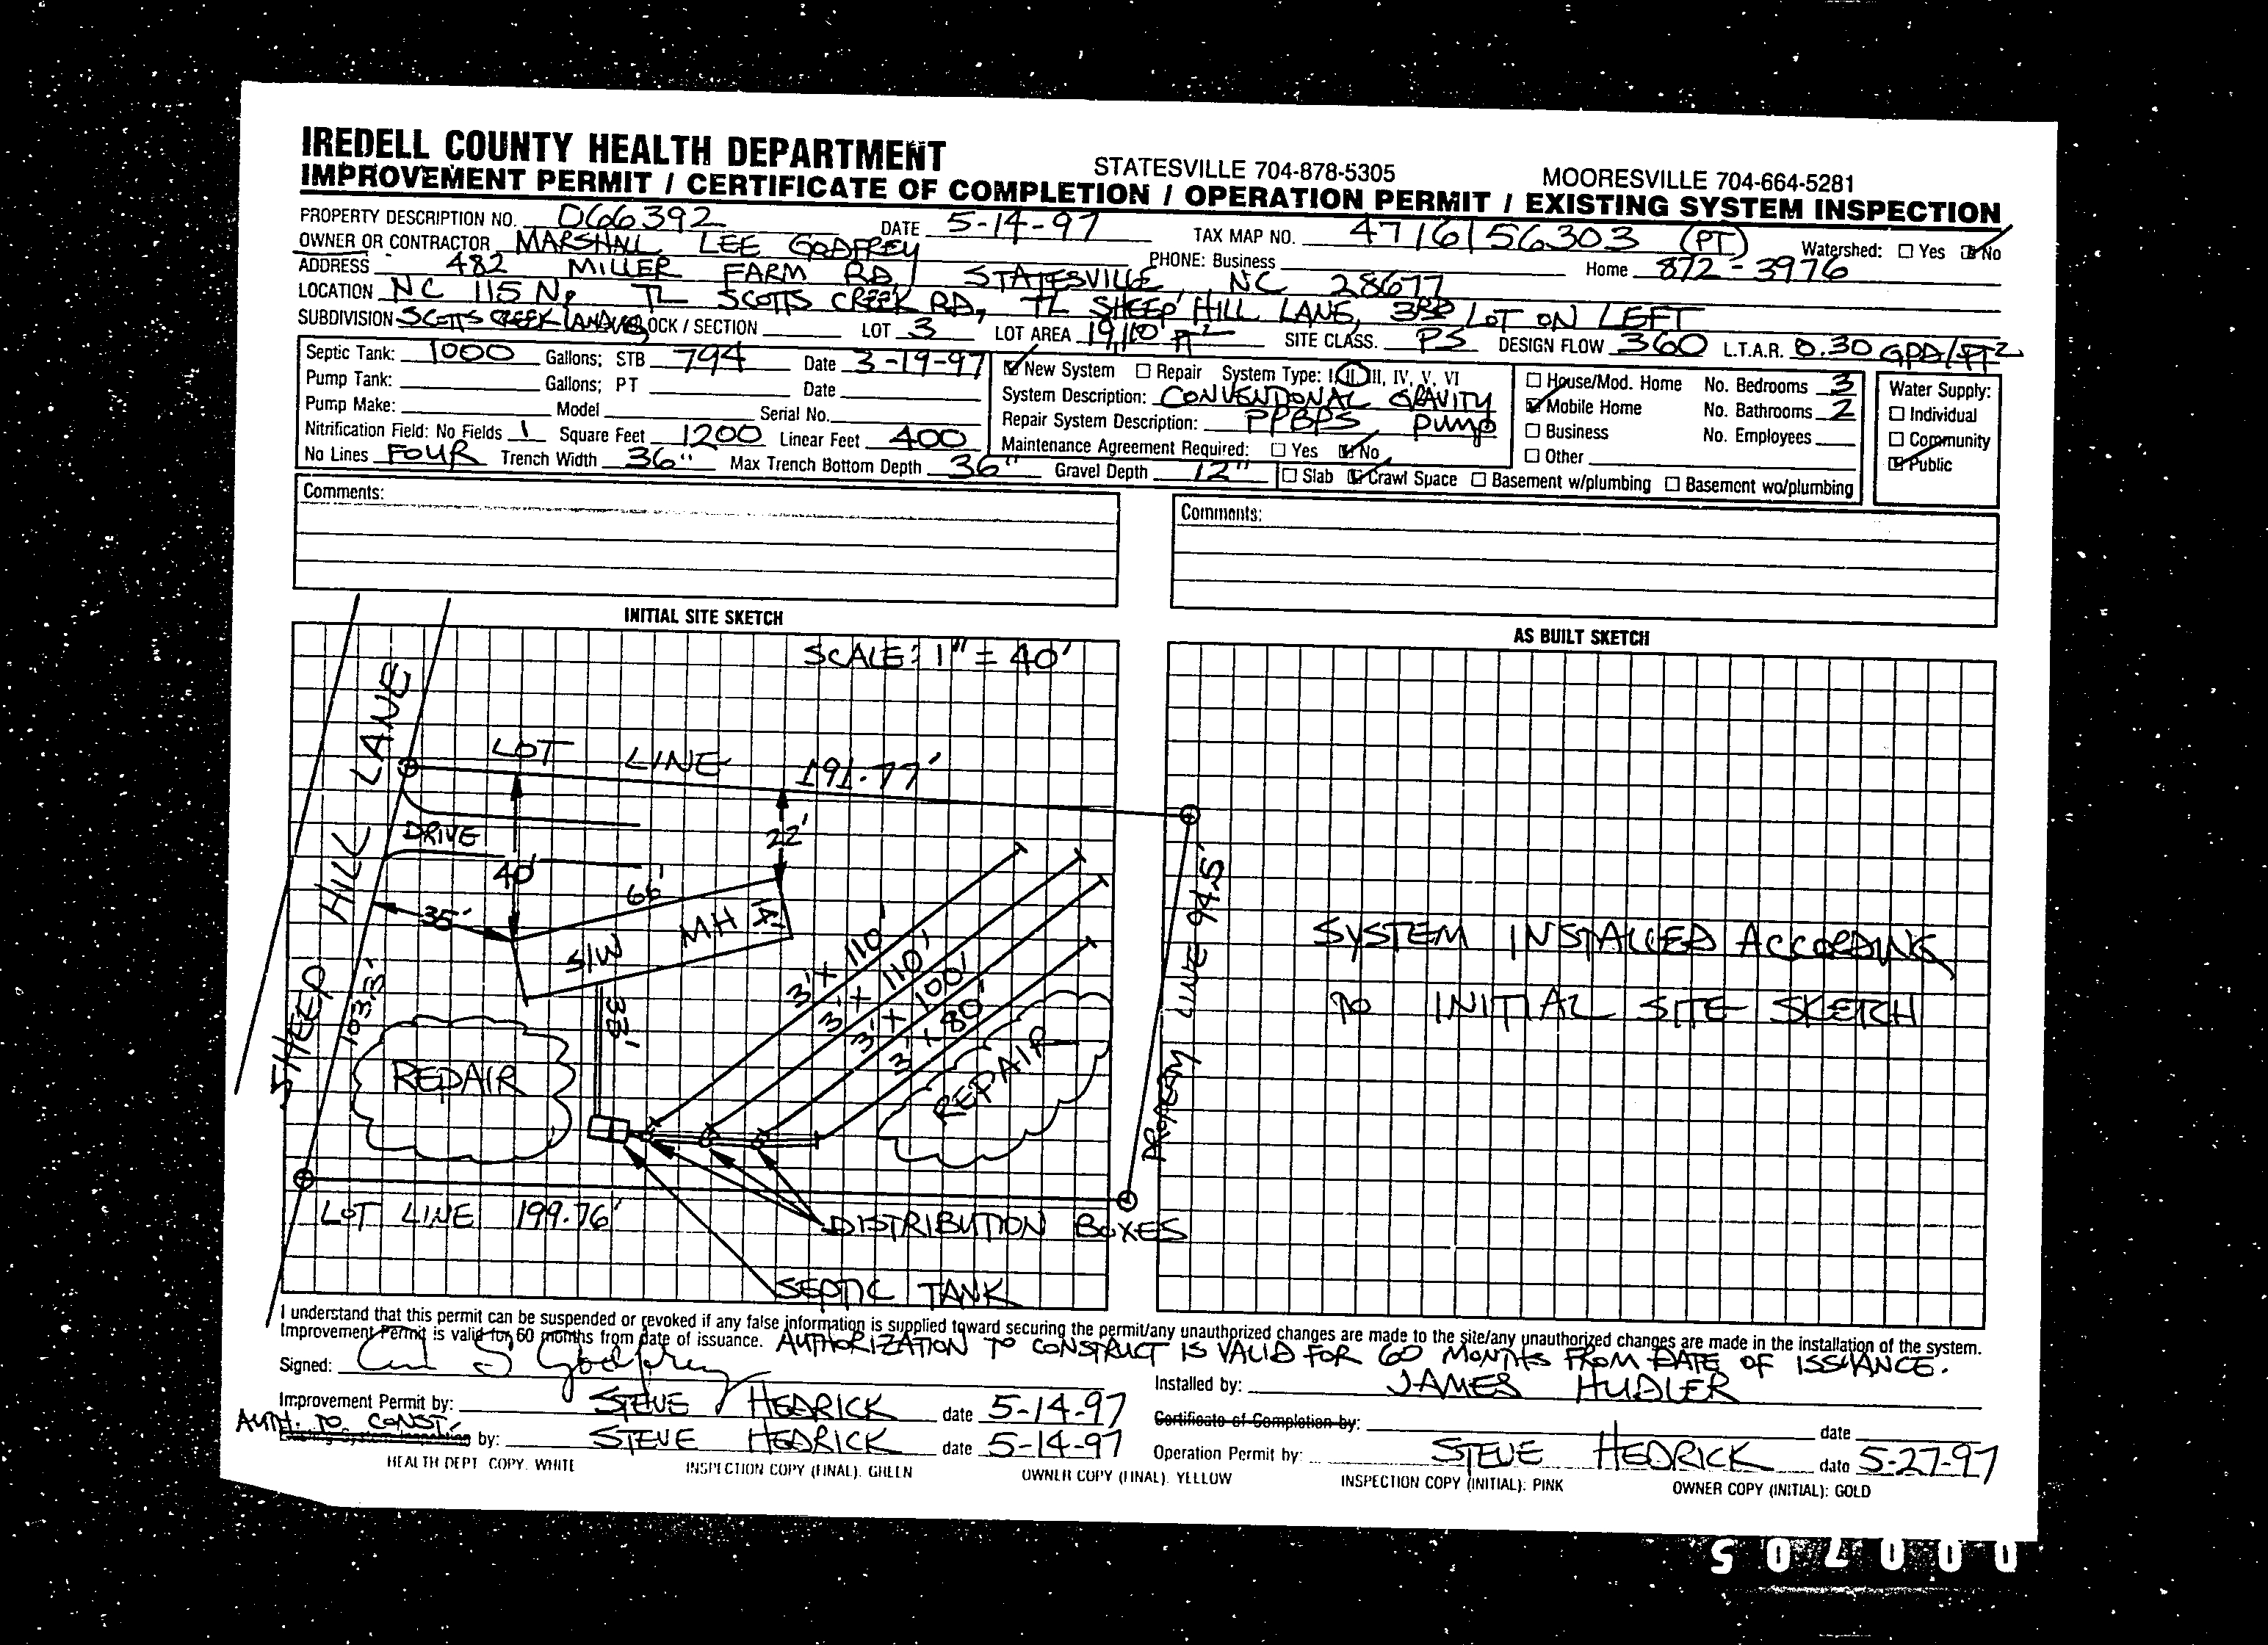 IREDELL COUNTY HEALTH DEPARTMENT STATESVILLE 704-878-5305 MOORESVILLE 704-664-5281
IMPROVEMENT PERMIT / CERTIFICATE OF COMPLETION / OPERATION PERMIT / EXISTING SYSTEM INSPECTION
PROPERTY DESCRIPTION NO. D66392 DATE 5-14-97 TAX MAP NO. 4716156303 (PT) Watershed: ☐ Yes ☑ No
OWNER OR CONTRACTOR MARSHALL LEE GODFREY PHONE: Business Home 872-3976
ADDRESS 482 MILLER FARM RD, STATESVILLE, NC 28677
LOCATION NC 115 N, TL SCOTTS CREEK RD, TL SHEEP HILL LANE, 3RD LOT ON LEFT
SUBDIVISION SCOTTS CREEK LANDING BLOCK / SECTION LOT 3 LOT AREA 19,110 FT² SITE CLASS. PS DESIGN FLOW 360 L.T.A.R. 0.30 GPD/FT²
Septic Tank: 1000 Gallons; STB 794 Date 3-19-97
Pump Tank: Gallons; PT Date
Pump Make: Model Serial No.
Nitrification Field: No Fields 1 Square Feet 1200 Linear Feet 400
No Lines FOUR Trench Width 36" Max Trench Bottom Depth 36" Gravel Depth 12"
☑ New System ☐ Repair System Type: I, II, III, IV, V, VI
System Description: CONVENTIONAL GRAVITY
Repair System Description: PPBPS PUMP
Maintenance Agreement Required: ☐ Yes ☑ No
☐ House/Mod. Home No. Bedrooms 3
☑ Mobile Home No. Bathrooms 2
☐ Business No. Employees
☐ Other
☐ Slab ☑ Crawl Space ☐ Basement w/plumbing ☐ Basement wo/plumbing
Water Supply:
☐ Individual
☐ Community
☑ Public
Comments:
Comments:
INITIAL SITE SKETCH
SCALE: 1" = 40'
SHEEP HILL LANE
LOT LINE 191.77'
DRIVE
40'
22'
66'
35'
S/W MH 14'
103.3'
33'
3' X 110'
3' X 110'
3' X 100'
3' X 80'
REPAIR
REPAIR
PROPERTY LINE 94.5'
LOT LINE 199.76'
DISTRIBUTION BOXES
SEPTIC TANK
AS BUILT SKETCH
SYSTEM INSTALLED ACCORDING
TO INITIAL SITE SKETCH
I understand that this permit can be suspended or revoked if any false information is supplied toward securing the permit/any unauthorized changes are made to the site/any unauthorized changes are made in the installation of the system.
Improvement Permit is valid for 60 months from date of issuance. AUTHORIZATION TO CONSTRUCT IS VALID FOR 60 MONTHS FROM DATE OF ISSUANCE.
Signed: S Godfrey
Installed by: JAMES HUDLER
Improvement Permit by: STEVE HEDRICK date 5-14-97
Certificate of Completion by: date
AUTH. TO CONST.
Existing System Inspection by: STEVE HEDRICK date 5-14-97
Operation Permit by: STEVE HEDRICK date 5-27-97
HEALTH DEPT. COPY. WHITE INSPECTION COPY (FINAL). GREEN OWNER COPY (FINAL). YELLOW INSPECTION COPY (INITIAL): PINK OWNER COPY (INITIAL): GOLD